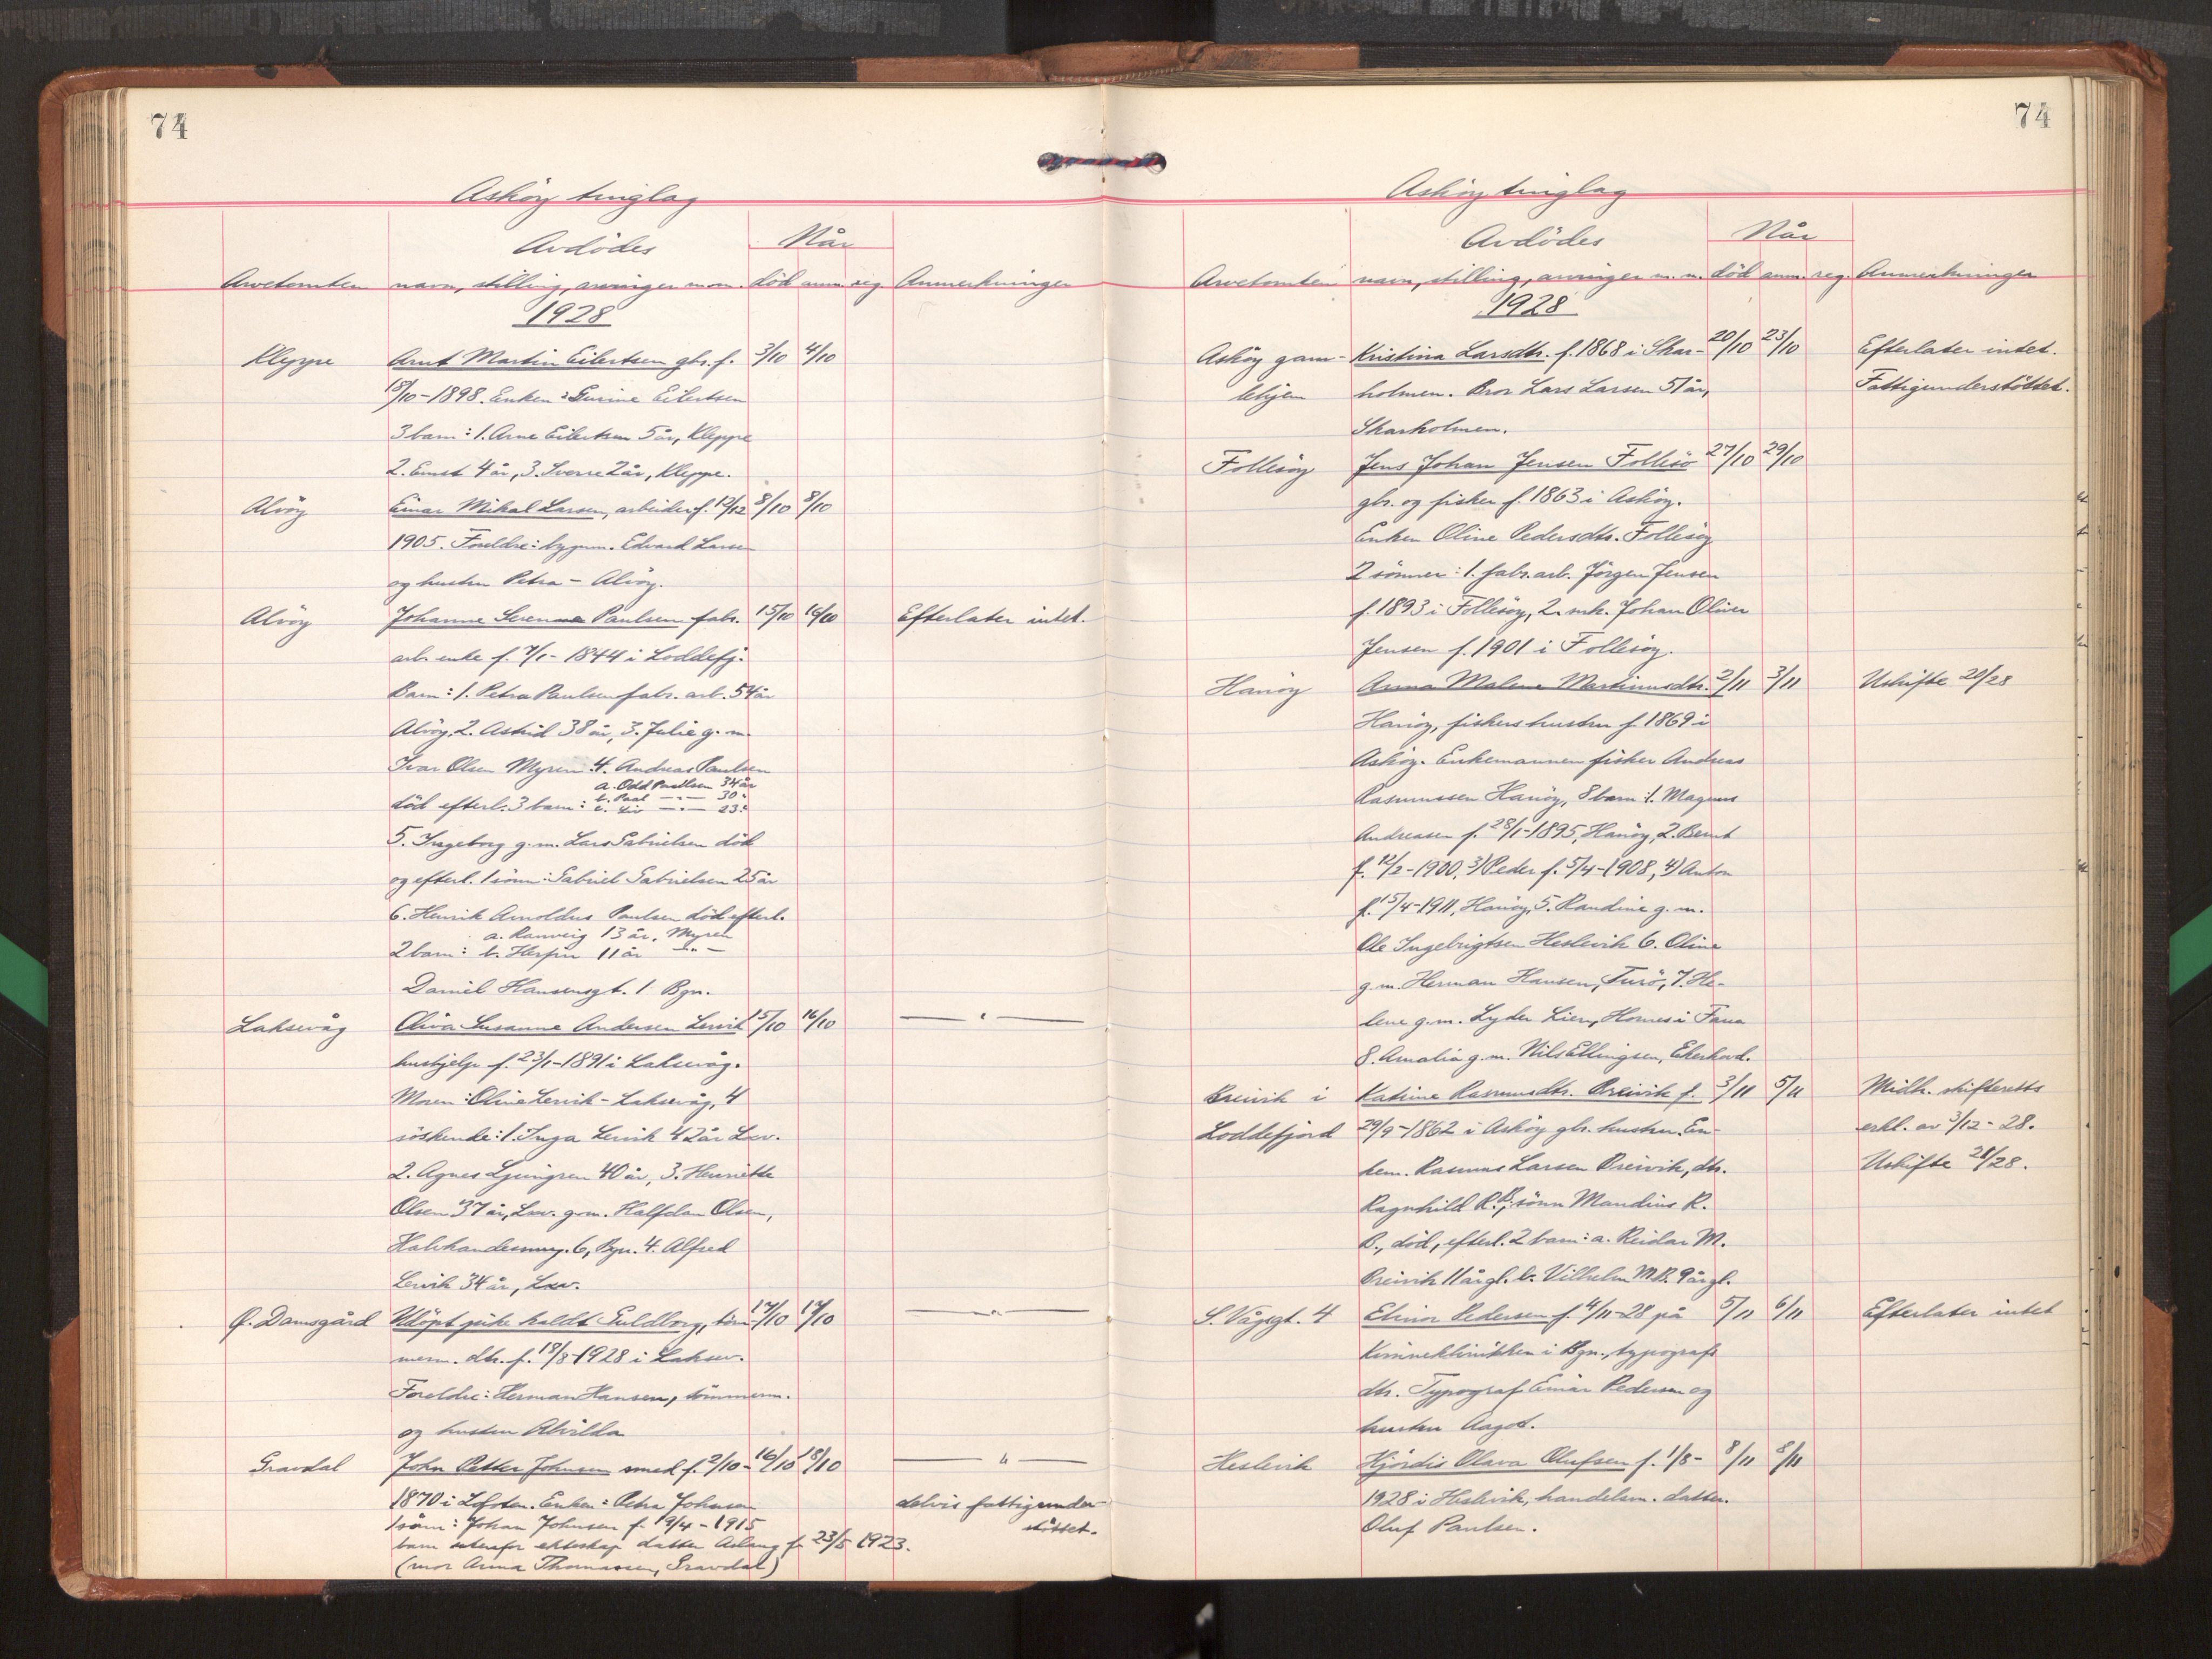 74
Askøy tinglag
Avdödes
Når
Arvetomten navn, stilling, arvinger m.m. död anm. reg. Anmerkninger
1928
Kleppe Arnt Martin Eilertsen gbr. f. 3/10 4/10
18/10-1898. Enken: Gurine Eilertsen
3 barn: 1. Arne Eilertsen 5 år, Kleppe
2. Ernst 4 år, 3. Sverre 2 år, Kleppe.
Alvöy Einar Mikal Larsen, arbeider f. 12/12 8/10 8/10
1905. Foreldre: bygnm. Edvard Larsen
og hustru Petra - Alvöy.
Alvöy Johanne Serenna Paulsen fabr. 15/10 16/10 Efterlater intet.
arb. enke f. 7/1-1844 i Loddefj.
Barn: 1. Petra Paulsen fabr. arb. 54 år
Alvöy, 2. Astrid 38 år, 3. Julie g. m.
Ivar Olsen Myren 4. Andreas Paulsen
a. Odd Paulsen 34 år
död efterl. 3 barn: b. Paal -"- 30 "
c. Liv -"- 23 "
5. Ingeborg g. m. Lars Gabrielsen död
og efterl. 1 sönn: Gabriel Gabrielsen 25 år
6. Henrik Arnoldus Paulsen död efterl.
a. Ranveig 13 år, Myren
2 barn: b. Herfin 11 år -"-
Daniel Hansensgt. 1 Bgn.
Laksevåg Oliva Susanne Andersen Lervik 15/10 16/10 — " —
hushjelp f. 23/1-1891 i Laksevåg.
Moren: Oline Lervik - Laksevåg, 4
söskende: 1. Inga Lervik 42 år Lxv.
2. Agnes Ljungren 40 år, 3. Henriette
Olsen 37 år, Lxv. g.m. Halfdan Olsen,
6, Bgn. 4. Alfred
Lervik 34 år, Lxv.
Ø. Damsgård Udöpt pike kaldt Guldborg, töm- 17/10 17/10 — " —
merm. dtr. f. 18/8-1928 i Laksev.
Foreldre: Herman Hansen, tömmerm.
og hustru Alvilda
Gravdal John Petter Johnsen smed f. 2/10- 16/10 18/10 — " —
1870 i Lofoten. Enken: Petra Johnsen delvis fattigunder-
1 sönn: Johan Johnsen f. 19/4-1915 støttet.
barn utenfor ekteskap datter Aslaug f. 23/5 1923.
(mor Anna Thomassen, Gravdal)
74
Askøy tinglag
Avdödes
Når
Arvetomten navn, stilling, arvinger m.m. död anm. reg. Anmerkninger
1928
Askøy gam- Kristina Larsdtr. f. 1868 i Skar- 20/10 23/10 Efterlater intet.
lehjem holmen. Bror Lars Larsen 51 år, Fattigunderstöttet.
Skarholmen.
Follesöy Jens Johan Jensen Follesö 27/10 29/10
gbr. og fisker f. 1863 i Askøy.
Enken Oline Pedersdtr. Follesöy
2 sönner: 1. fabr. arb. Jörgen Jensen
f. 1893 i Follesöy, 2. Johan Oliver
Jensen f. 1901 i Follesöy.
Hanöy Anna Malene Martinusdtr. 2/11 3/11 Uskifte 20/28
Hanöy, fiskers hustru f. 1869 i
Askøy. Enkemannen fisker Andreas
Rasmussen Hanöy, 8 barn: 1. Magnus
Andreasen f. 28/1-1895, Hanöy, 2. Bernt
f. 12/2-1900, 3) Peder f. 5/4-1908, 4) Anton
f. 15/4-1911, Hanöy, 5. Randine g. m.
Ole Ingebrigtsen Heslevik 6. Oline
g. m. Herman Hansen, Turö, 7. He-
lene g. m. Lyder Lien, Hornes i Fana
8. Amalia g. m. Nils Ellingsen, Ekerhovd.
Breivik i Katrine Rasmusdtr. Breivik f. 3/11 5/11 Midh. skifteretts
Loddefjord 29/9-1862 i Askøy gbr. hustru. En- erkl. av 3/12-28.
kem. Rasmus Larsen Breivik, dtr. Uskifte 21/28.
Ragnhild R. B., sönn Mandius R.
B., död, efterl. 2 barn: a. Reidar M.
Breivik 11 år gl. b. Vilhelm M. B. 9 år gl.
S. Vågsgt. 4 Elinor Pedersen f. 4/11-28 på 5/11 6/11 Efterlater intet
Kvinneklinikken i Bgn., typografs
dtr. Typograf Einar Pedersen og
hustru Aagot.
Heslevik Hjördis Olava Olufsen f. 1/8- 8/11 8/11
1928 i Heslevik, handelsm. datter.
Oluf Paulsen.